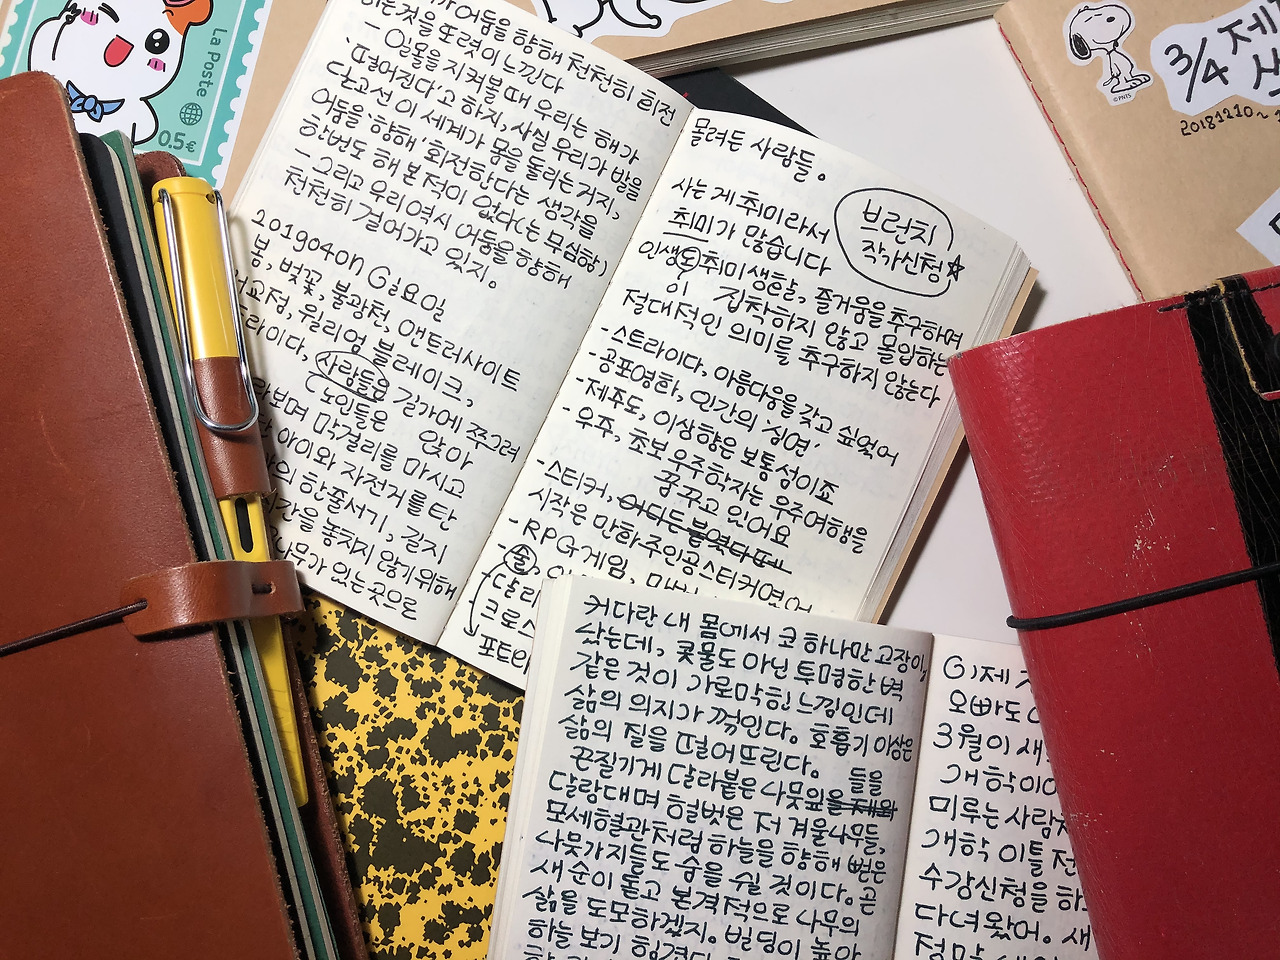 La Poste
0.5€
어둠을 향해 천천히 회전
하는 것을 또렷이 느낀다
- 일몰을 지켜볼 때 우리는 해가
'떨어진다'고 하지, 사실 우리가 발을
딛고 선 이 세계가 몸을 돌리는 거지,
어둠을 향해 '회전한다'는 생각을
한번도 해 본 적이 없다(는 무심함)
- 그리고 우리 역시 어둠을 향해
천천히 걸어가고 있지.
201904on 일요일
봄, 벚꽃, 불광천, 앤트러사이트
서교점, 윌리엄 블레이크,
트라이다, 사람들은 길가에 쭈그려
노인들은 앉아
보며 막걸리를 마시고
아이와 자전거를 탄
한줄서기, 같지
시간을 놓치지 않기 위해
나무가 있는 곳으로
몰려든 사람들.
사는 게 취미라서
취미가 많습니다
브런치
작가신청☆
인생도 취미 생활, 즐거움을 추구하며
이 집착하지 않고 몰입하는
절대적인 의미를 추구하지 않는다
- 스트라이다, 아름다움을 갖고 싶었어
- 공포영화, 인간의 '심연'
- 제주도, 이상향은 보통 섬이죠
- 우주, 초보 우주학자는 우주여행을
꿈꾸고 있어요
- 스티커, 어디든 붙였다 떼
시작은 만화주인공 스티커였어
- RPG게임,
- 술,
달리
크로스
포트
3/4 제
20181210~
커다란 내 몸에서 코 하나만 고장이
났는데, 콧물도 아닌 투명한 벽
같은 것이 가로막힌 느낌인데
삶의 의지가 꺾인다. 호흡기 이상은
삶의 질을 떨어뜨린다.
끈질기게 달라붙은 나뭇잎을 들을
달랑대며 헐벗은 저 겨울나무들,
모세혈관처럼 하늘을 향해 뻗은
나뭇가지들도 숨을 쉴 것이다. 곧
새 순이 돋고 본격적으로 나무의
삶을 도모하겠지. 빌딩이 높아
하늘 보기 힘겹다.
이제
오빠도
3월이 새
개학이
미루는 사람
개학 이틀 전
수강신청을 하
다녀왔어. 새